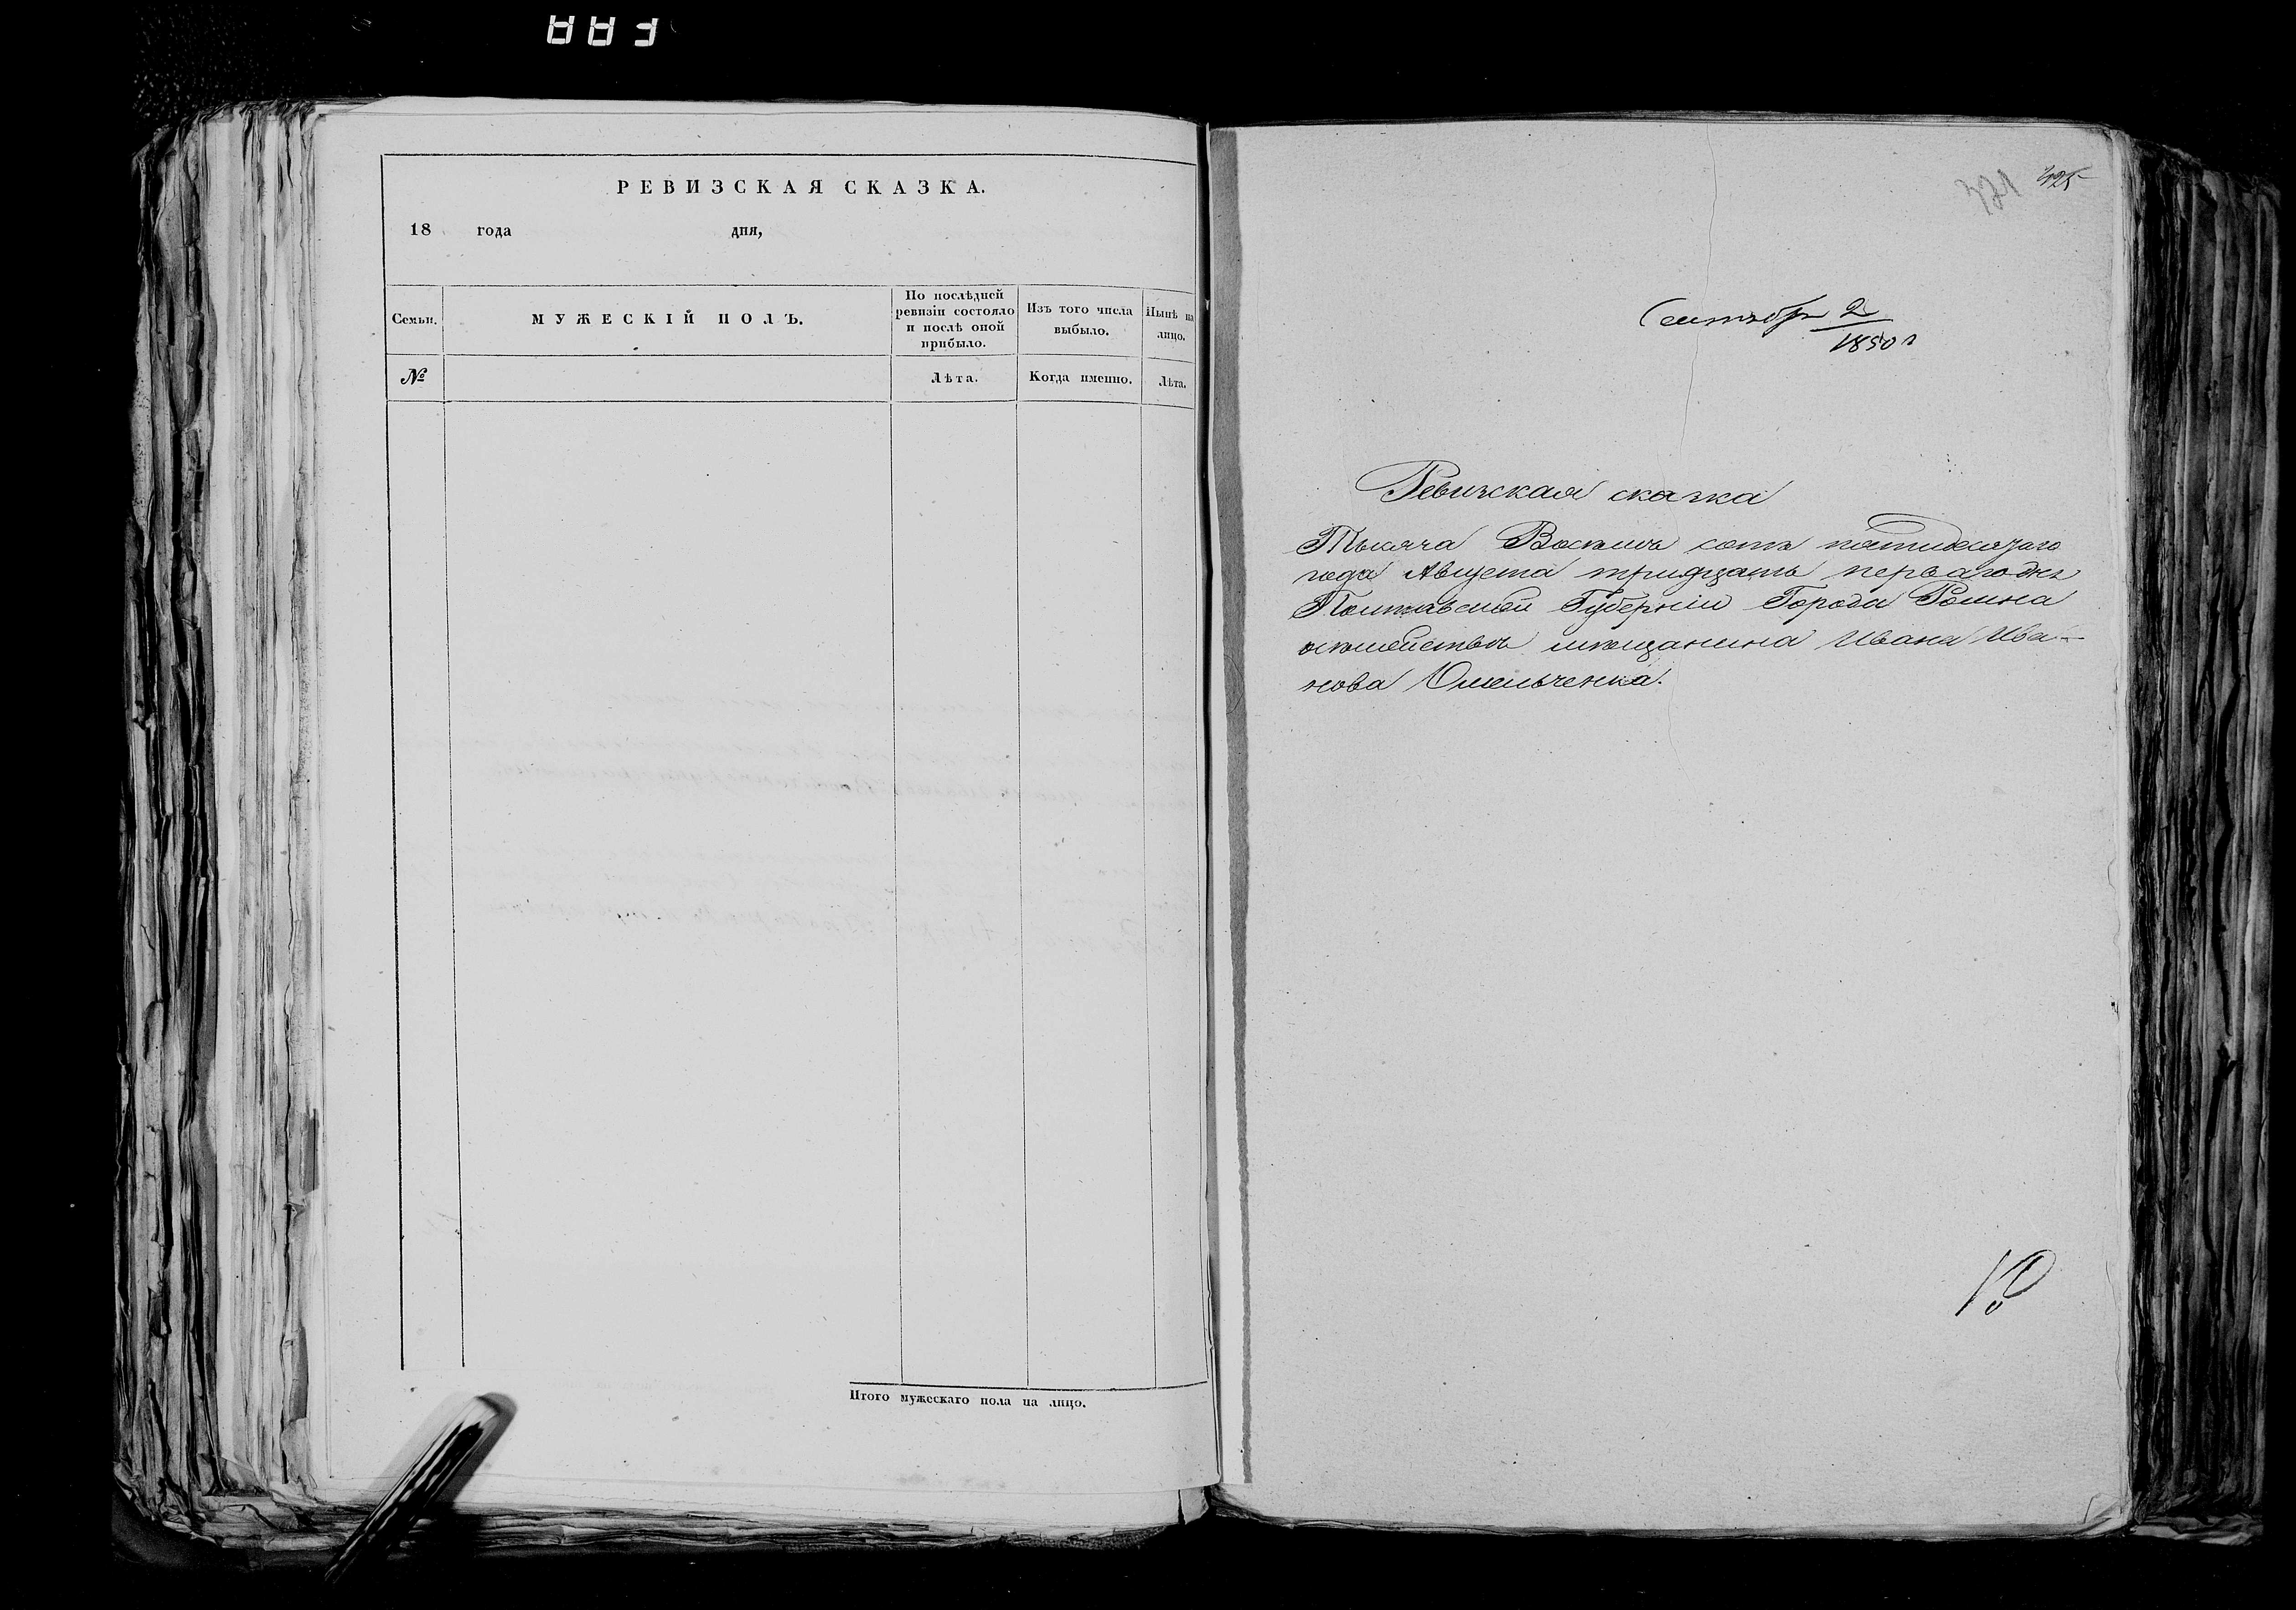 РЕВИЗСКАЯ СКАЗКА.
18 года дня,
Семьи.
МУЖЕСКІЙ ПОЛЪ.
По послѣдней
ревизіи состояло
и послѣ оной
прибыло.
Изъ того числа
выбыло.
Нынѣ на
лицо.
№
Лѣта.
Когда именно.
Лѣта.
Итого мужескаго пола на лицо.
325
Сентября 2
1850 г
Ревизская сказка
Тысяча Восемь сотъ пятидесятаго
года Августа тридцать перваго дня
Полтавской Губерніи Города Ромна
о семействѣ мещанина Ивана Ива-
нова Омельченка.